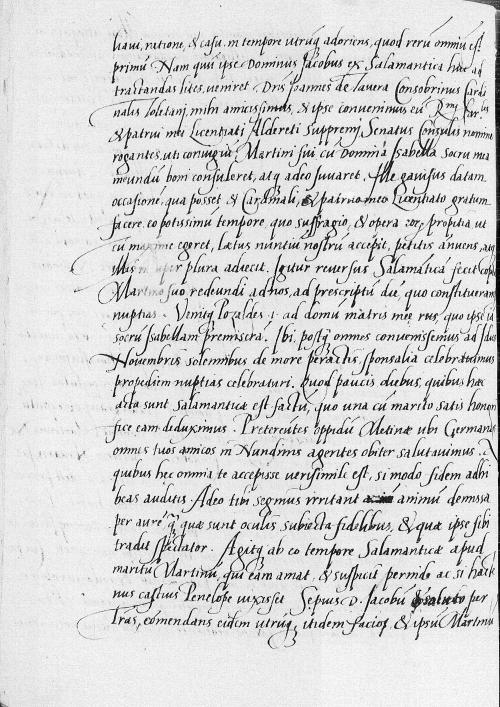 liavi, ratione, & casu. in tempore utrūq adoriens, quod rerū omniū est
primū Nam quū ipse Dominus Jacobus ex Salamantica huc ad
tractandas lites, veniret Dn̄s Joannes de Tavera Consobrinus Cardi
nalis Toletanj, mihi amicissimus, & ipse convenimus cū Rmj Car lis
& patrui mei Licentiati Aldereti Suppremj Senatus Consulis nomine
rogantes, uti coniugiū Martini sui cū Dominā Isabella socru mea
ineundū boni consuleret, atq adeo iuvaret. Ille gavisus datam
occasionē, qua posset & Cardinali, & patruo meo Licentiato gratum
facere, eo potissimū tempore, quo suffragio, & opera eor, propitia ut
cū maxime egeret, Lætus nuntiū nostrū accepit, petitis anuens, atq
illis plura adiecit. Igitur reversus Salamāticā fecit copiā
Martino suo redeundi ad nos, ad prescriptū diē, quo constitueram
nuptias. Venitq Po.aldes .1. ad domū matris meę rus, quo ipse iā
socrū Isabellam premiserā. Ibi postq̄ omnes convenissemus ad Idus
Novembris solemnibus de more peractis, sponsalia celebravimus
propediem nuptias celebraturi. Quod paucis diebus, quibus hæc
acta sunt Salamanticæ est factū, quo una cū marito satis honori
fice eam diduximus. Pretereūtes oppidū Metinæ ubi Germanos
omnes tuos amicos in Nundinis agentes obiter salutavimus. A
quibus hec omnia te accepisse verisimile est, si modo fidem adhi
beas auditis. Adeo tibi segnius irritant animū demissa
per aurē q̄ quæ sunt oculis subiecta fidelibus, & quæ ipse sibi
tradit spectator. Agitq ab eo tempore Salamanticæ apud
maritū Martinū, qui eam amat, & suspicit perinde ac si hacte
nus castius Penelope vixisset Sepius D. Jacobū saluto per
l̄ras, com̄endans eidem utrūq, itidem facios, & ipsū Martinū